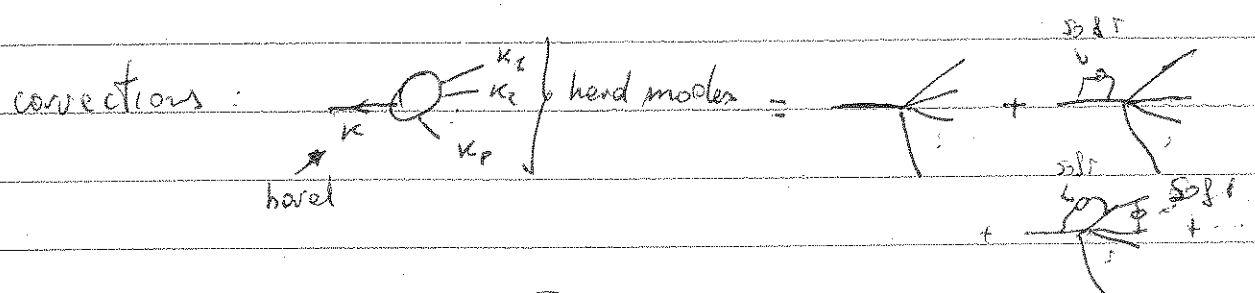 soft
corrections : K K1 K2 Kp hard modes = +
hard
soft soft
+ + ...